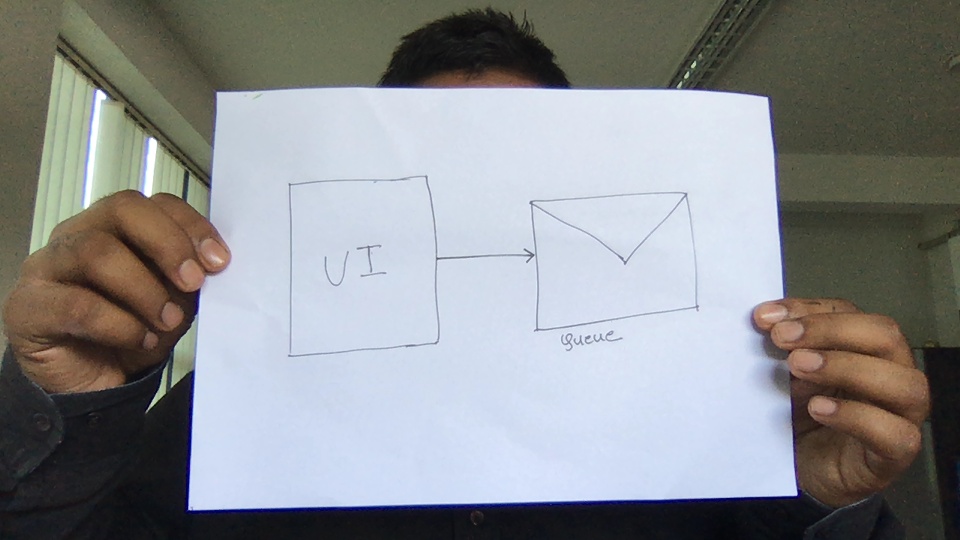 UI
Queue